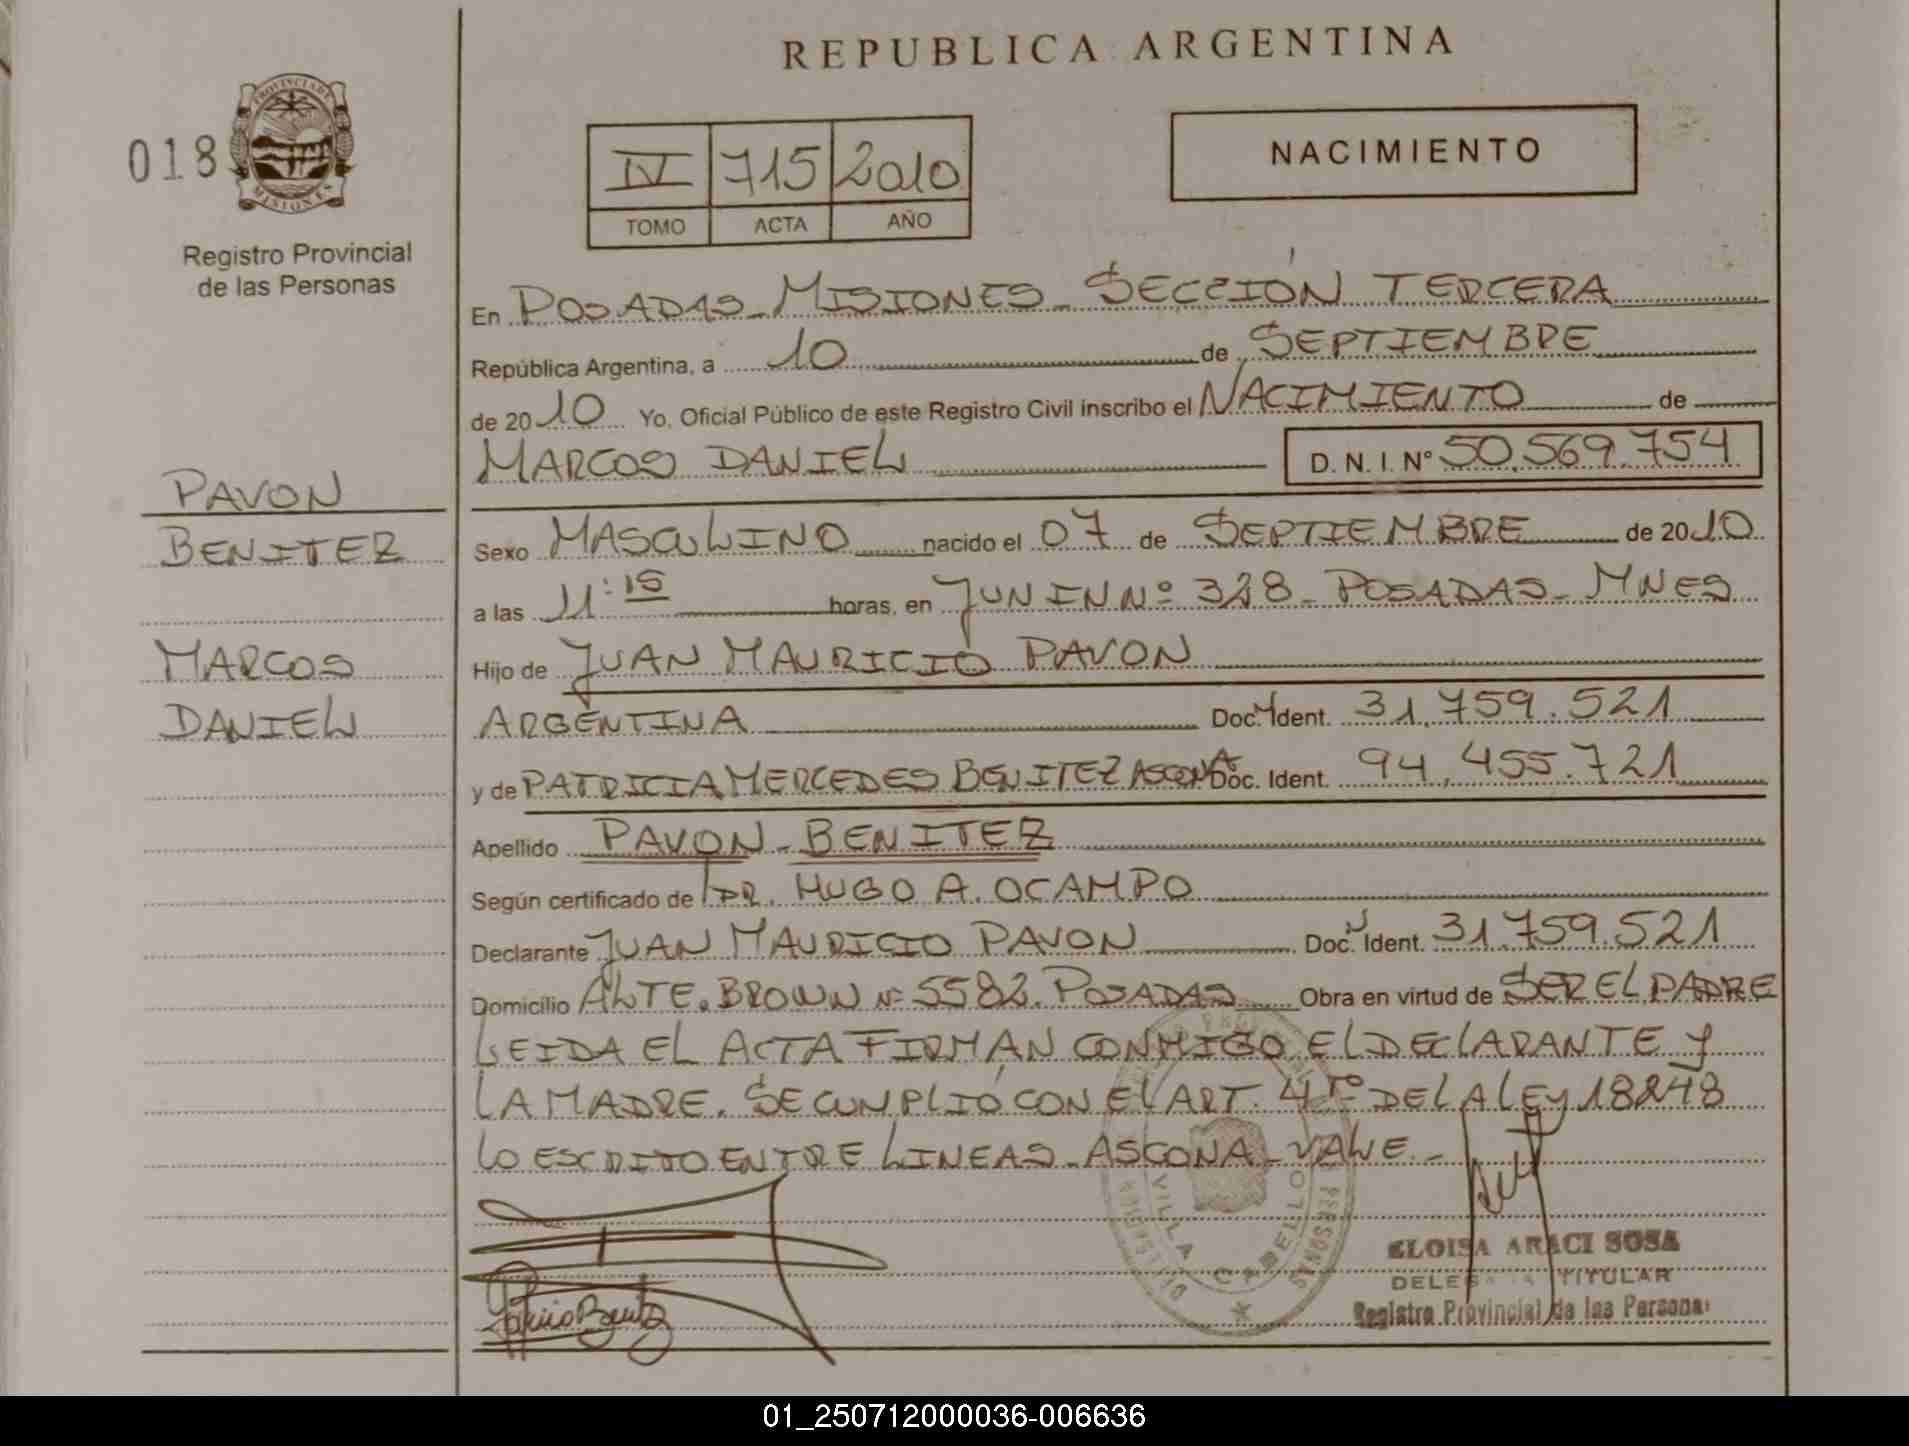 REPUBLICA ARGENTINA
018
PROVINCIA DE
MISIONES
Registro Provincial
de las Personas
IV 715 2010
TOMO ACTA AÑO
NACIMIENTO
En POSADAS - MISIONES - SECCIÓN TERCERA
República Argentina, a 10 de SEPTIEMBRE
de 2010 Yo, Oficial Público de este Registro Civil inscribo el NACIMIENTO de
MARCOS DANIEL D. N. I. N° 50.569.754
PAVON
BENITEZ
MARCOS
DANIEL
Sexo MASCULINO nacido el 07 de SEPTIEMBRE de 2010
a las 11:15 horas, en JUNIN Nº 328 - POSADAS - MNES
Hijo de JUAN MAURICIO PAVON
ARGENTINA Doc. Ident. 31.759.521
y de PATRICIA MERCEDES BENITEZ ASCONA Doc. Ident. 94.455.721
Apellido PAVON - BENITEZ
Según certificado de DR. HUGO A. OCAMPO
Declarante JUAN MAURICIO PAVON Doc. Ident. 31.759.521
Domicilio ALTE. BROWN Nº 5582. POSADAS Obra en virtud de SER EL PADRE
LEIDA EL ACTA FIRMAN CONMIGO EL DECLARANTE Y
LA MADRE. SE CUMPLIÓ CON EL ART. 4to DE LA LEY 18248
LO ESCRITO ENTRE LINEAS - ASCONA - VALE.-
VILLA CABELLO
ELOISA ARACI SOSA
DELEGADA TITULAR
Registro Provincial de las Personas
Patricia Benitez
01_250712000036-006636